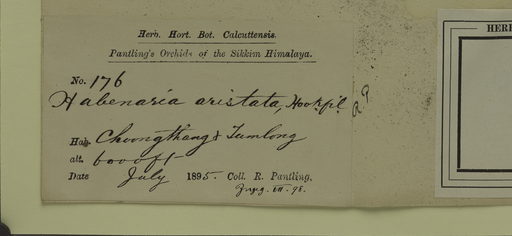 Herb. Hort. Bot. Calcuttensis.
Pantling's Orchids of the Sikkim Himalaya.
No. 176
Habenaria aristata, Hook.fil.
Hab. Choongthang & Tumlong
alt. 6000 ft
Date July 1895. Coll. R. Pantling.
HERB